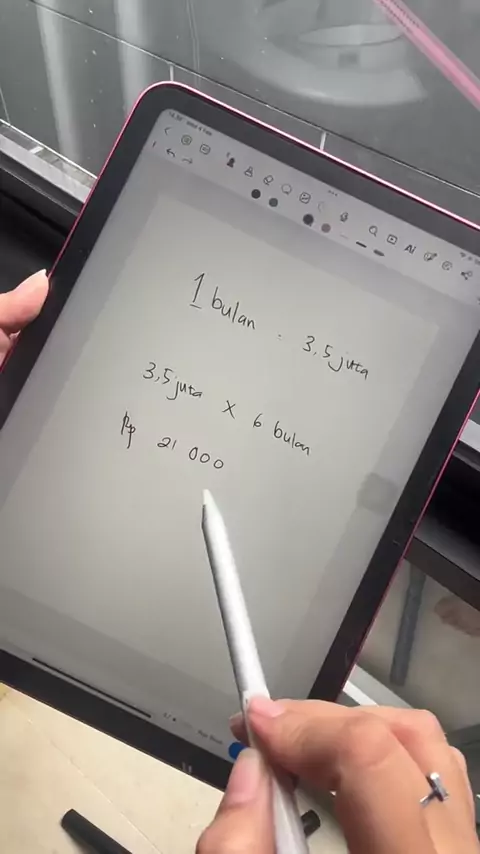 1 bulan = 3,5 juta
3,5 juta x 6 bulan
Rp 21 000